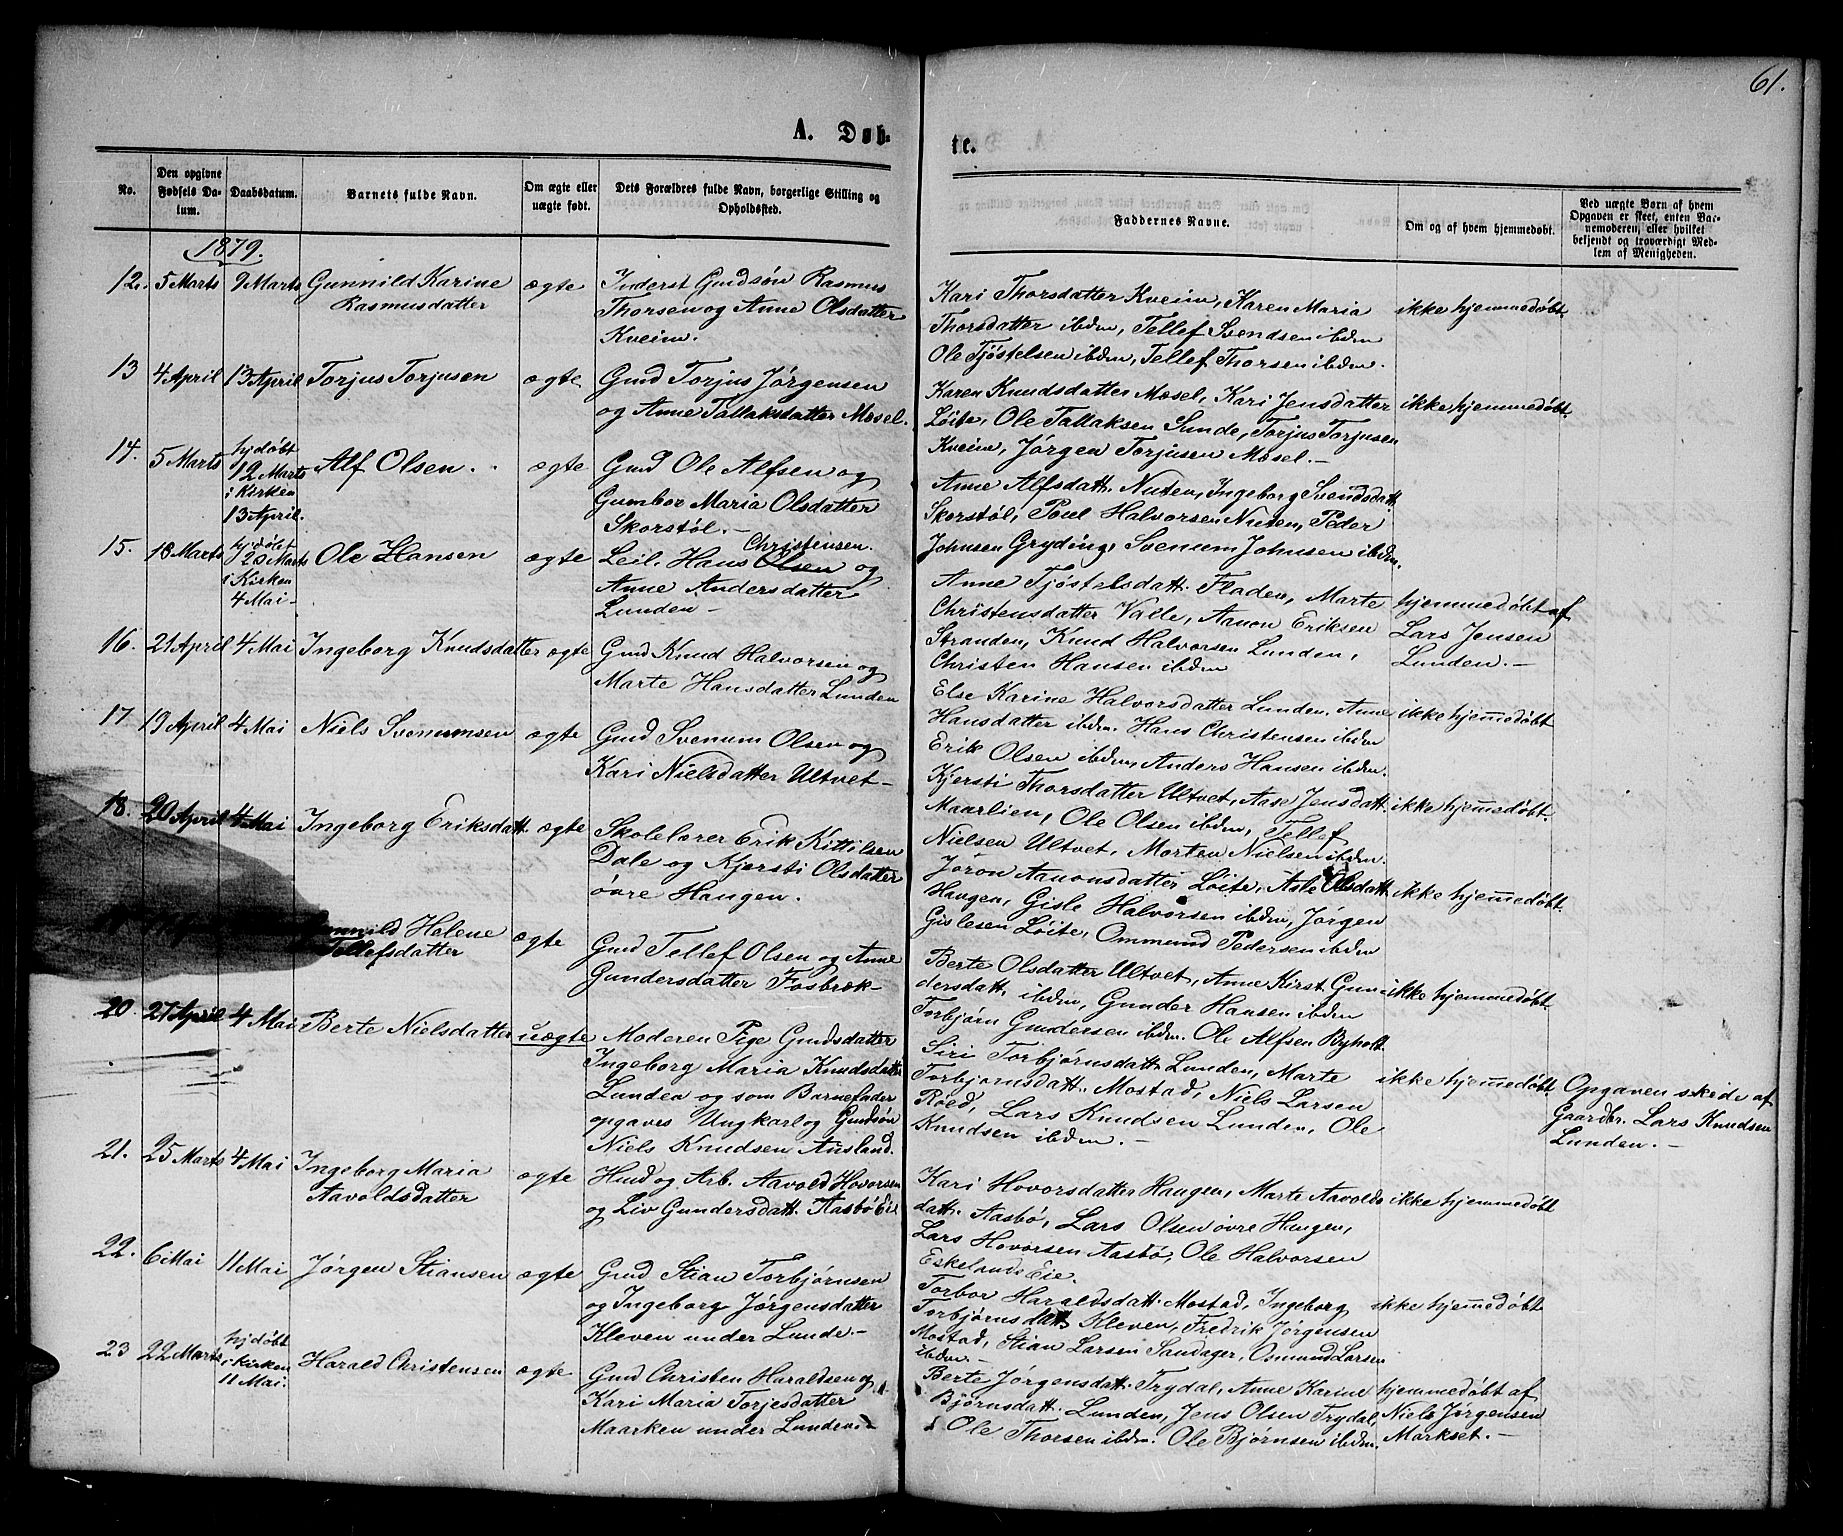 61.
A. Døb-
te.
No.
Den opgivne
Fødsels Da-
tum.
Daabsdatum.
Barnets fulde Navn.
Om ægte eller
uægte født.
Dets Forældres fulde Navn, borgerlige Stilling og
Opholdssted.
Faddernes Navne.
Om og af hvem hjemmedøbt.
Ved uægte Børn af hvem
Opgaven er skeet, enten Bar-
nemoderen, eller hvilket
bekjendt og troværdigt Med-
lem af Menigheden.
1879.
12. 5 Marts 9 Marts Gunnild Karine
Rasmusdatter
ægte
Inderst Gmdsøn Rasmus
Thorsen og Anne Olsdatter
Kveim.
Kari Thorsdatter Kveim, Karen Maria
Thorsdatter ibdm, Tellef Svendsen ibdm
Ole Tjøstelsen ibdm, Tellef Thorsen ibdm.
ikke hjemmedøbt.
13 4 April 13 April Torjus Torjusen
ægte
Gmd Torjus Jørgensen
og Anne Tallaksdatter Mosel.
Karen Knudsdatter Mosel, Kari Jensdatter
Løite, Ole Tallaksen Sunde, Torjus Torjusen
Kveim, Jørgen Torjusen Mosel.-
ikke hjemmedøbt.
14. 5 Marts
hjdøbt
12 Marts
i Kirken
13 April.
Alf Olsen.
ægte
Gmd Ole Alfsen og
Gumbor Maria Olsdatter
Skorstøl.-
Anne Alfsdatt. Nuten, Ingeborg Svendsdatt.
Skorstøl, Poul Halvorsen Nuten, Peder
Johnsen Gryding, Svenum Johnsen ibdm.
15. 18 Marts
hjdøbt
23 Marts
i Kirken
4 Mai-
Ole Hansen
ægte
Christensen.
Leil. Hans Olsen og
Anne Andersdatter
Lunden-
Anne Tjøstelsdatt. Fladen, Marte
Christensdatter Valle, Aanon Eriksen
Stranden, Knud Halvorsen Lunden,
Christen Hansen ibdm
hjemmedøbt af
Lars Jensen
Lunden.-
16. 21 April 4 Mai Ingeborg Knudsdatter ægte
Gmd Knud Halvorsen og
Marte Hansdatter Lunden
Else Karine Halvorsdatter Lunden. Anne
Hansdatter ibdm. Hans Christensen ibdm
Erik Olsen ibdm, Anders Hansen ibdm.
ikke hjemmedøbt
17. 19 April 4 Mai Niels Svenumsen
ægte
Gmd Svenum Olsen og
Kari Nielsdatter Ultvet-
Kjersti Thorsdatter Ultvet, Aase Jensdatt.
Maarlien, Ole Olsen ibdm, Tellef
Nielsen Ultvet, Morten Nielsen ibdm.
ikke hjemmedøbt.
18. 20 April 4 Mai Ingeborg Eriksdatt. ægte
Skolelærer Erik Kittilsen
Dale og Kjersti Olsdatter
øvre Haugen.
Jøron Aanonsdatter Løite, Asle Olsdatt.
Haugen, Gisle Halvorsen ibdm, Jørgen
Gislesen Løite, Ommund Pedersen ibdm
ikke hjemmedøbt.
Gunnild Helene
Tellefsdatter
ægte
Gmd Tellef Olsen og Anne
Gundersdatter Fosbræk-
Berte Olsdatter Ultvet, Anne Kirst. Gun-
dersdatt. ibdm, Gunder Hansen ibdm
Torbjørn Gundersen ibdm. Ole Alfsen Byholt.
ikke hjemmedøbt
20. 27 April 4 Mai Berte Nielsdatter uægte
Moderen Pige Gmdsdatter
Ingeborg Maria Knudsdatt.
Lunden og som Barnefader
opgaves Ungkarl og Gmdsøn
Niels Knudsen Ausland.
Siri Torbjørnsdatt. Lunden, Marte
Torbjørnsdatt. Mostad, Niels Larsen
Røed, Lars Knudsen Lunden, Ole
Knudsen ibdm.-
ikke hjemmedøbt
Opgaven skede af
Gaardbr. Lars Knudsen
Lunden.-
21. 25 Marts 4 Mai Ingeborg Maria
Aavoldsdatter
ægte
Hmd og Arb. Aavold Hovorsen
og Liv Gundersdatt. Aasbø Eie
Kari Hovorsdatter Haugen, Marte Aavolds
datt. Aasbø, Lars Olsen øvre Haugen,
Lars Hovorsen Aasbø, Ole Halvorsen
Eskelands Eie.
ikke hjemmedøbt
22. 6 Mai 11 Mai Jørgen Stiansen ægte
Gmd Stian Torbjørnsen
og Ingeborg Jørgensdatter
Kleven under Lunde.-
Torbor Haraldsdatt. Mostad, Ingeborg
Torbjørnsdatt. Kleven, Fredrik Jørgensen
Mostad, Stian Larsen Sandager, Osmund Larsen
ibdm.-
ikke hjemmedøbt
23 22 Marts
hjdøbt
i Kirken
11 Mai.
Harald Christensen ægte
Gmd Christen Haraldsen og
Kari Maria Torjesdatter
Maarken under Lunden.-
Berte Jørgensdatt. Trydal, Anne Karine
Bjørnsdatt. Lunden, Jens Olsen Trydal,
Ole Thorsen ibdm. Ole Bjørnsen ibdm.
hjemmedøbt af
Niels Jørgensen
Markset.-